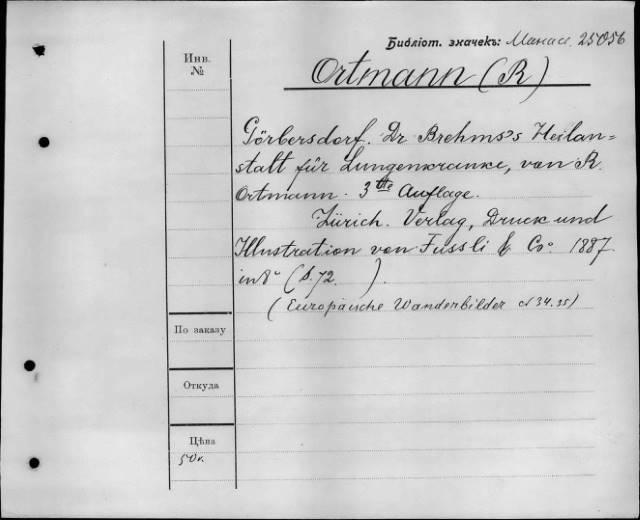 Библіот. значекъ: Манас. 25056
Инв.
№
Ortmann (R)
Görbersdorf. Dr Brehms's Heilan=
stalt für Lungenkranke, von R.
Ortmann. 3tte Auflage.
Zürich. Verlag, Druck und
Illustration von Füssli & Co. 1887.
in 8° (S. 72. ).
(Europäische Wanderbilder N 34.35)
По заказу
Откуда
Цѣна
50к.